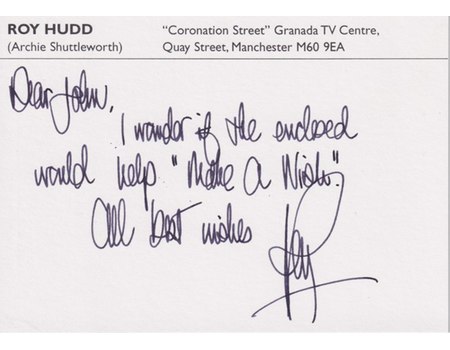 ROY HUDD "Coronation Street" Granada TV Centre,
(Archie Shuttleworth) Quay Street, Manchester M60 9EA
Dear John,
I wonder if the enclosed
would help "Make A Wish".
All best wishes
Roy